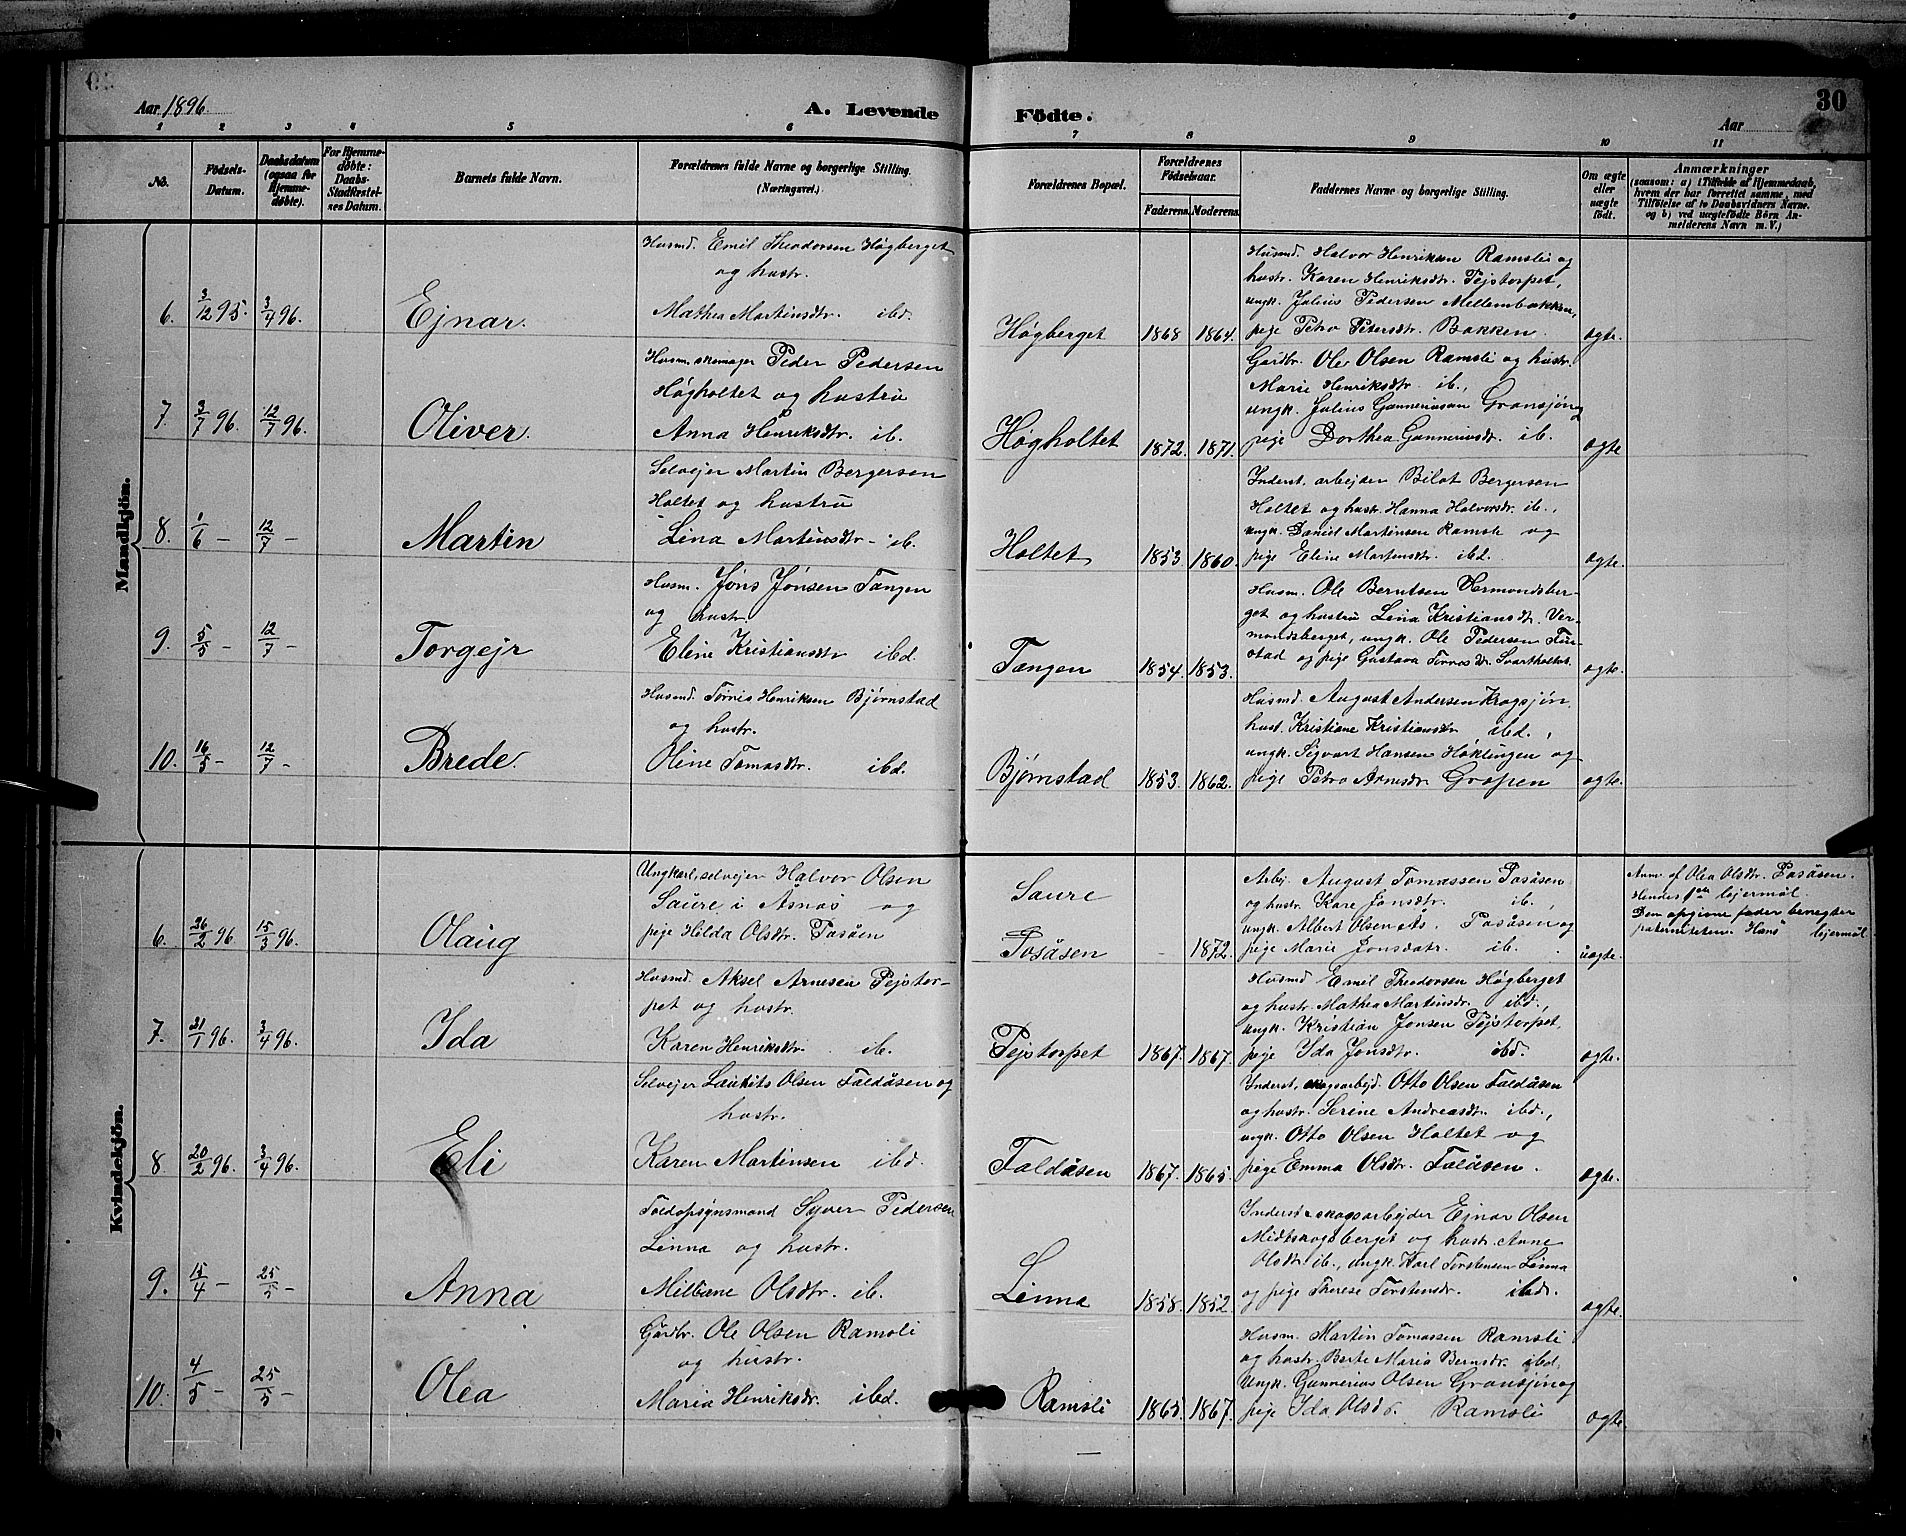 Aar 1896
A. Levende
Födte.
Aar
30
1 2 3 4 5 6 7 8 9 10 11
No.
Födsels-
Datum.
Daabsdatum
(ogsaa for
Hjemme-
döbte).
For Hjemme-
döbte:
Daabs-
Stadfæstel-
ses Datum.
Barnets fulde Navn.
Forældrenes fulde Navne og borgerlige Stilling.
(Næringsvei.)
Forældrenes Bopæl.
Forældrenes
Födselsaar.
Faderens. Moderens.
Faddernes Navne og borgerlige Stilling.
Om ægte
eller
uægte
födt.
Anmærkninger
(saasom: a) i Tilfælde af Hjemmedaab,
hvem der har forrettet samme, med
Tilföielse af to Daabsvidners Navne.
og b) ved uægtefödte Börn An-
melderens Navn m. V.)
Mandkjön.
6. 3/12 95. 3/4 96. Ejnar.
Husmd. Emil Theodorsen Høgberget
og hustr.
Mathea Martinsdtr. ibd.
Høgberget 1868 1864.
Husmd. Halvor Henriksen Ramsli og
hustr. Karen Henriksdtr. Pejstorpet,
ungk. Julius Pedersen Mellembakken,
pige Petra Petersdtr. Bakken.
ægte.
7. 3/7 96. 12/7 96. Oliver.
Husm. skomager Peder Pedersen
Høgholtet og hustru
Anna Henriksdtr. ib.
Høgholtet 1872. 1871.
Gårdbr. Ole Olsen Ramsli og hustr.
Marie Henriksdtr. ib.,
ungk. Julius Gunneriusen Gransjøn og
pige Dorthea Gunneriusdtr. ib.
ægte
8. 1/6 – 12/7 – Martin
Selvejer Martin Bergersen
Holtet og hustru
Lina Martinsdtr. ib.
Holtet 1853. 1860.
Inderst. arbejder Bilot Bergersen
Holtet og hustr. Hanna Halvorsdtr. ib.,
ungk. Daniel Martinsen Ramsli og
pige Eline Martinsdtr. ibd.
ægte.
9. 5/5 – 12/7 – Torgejr
Husm. Jøns Jønsen Tangen
og hustr.
Eline Kristiansdtr ibd.
Tangen 1854. 1853.
Husm. Ole Berntsen Vermundsber-
get og hustru Lina Kristiansdtr. Ver-
mondsberget, ungk. Ole Pedersen
og pige Gustava Svartholtet.
ægte.
10. 16/5 – 12/7 – Brede.
Husmd. Tørnis Henriksen Bjørnstad
og hustr.
Oline Tomasdtr. ibd.
Bjørnstad 1853. 1862.
Husmd. August Andersen Kragsjøn,
hust. Kristiane Kristiansdtr ibd.,
ungk. Sigvart Hansen Høklingen og
pige Petra Arnesdtr. Grafen
ægte.
Kvindekjön.
6. 26/2 96. 15/3 96. Olaug
Ungkarl, selvejer Halvor Olsen
Saure i Åsnæs og
pige Hilda Olsdtr. Posåsen
Saure
Posåsen – 1872.
Arbj. August Tomassen Posåsen
og hustr. Kare Jonsdtr. ib.,
ungk. Albert Olsen Posåsen og
pige Marie Jonsdatr. ib.
uægte.
Anm. af Olea Olsdtr. Posåsen.
Hendes 1ste lejermål.
Den opgivne fader benegter
paterniteten. Hans lejermål
7. 31/1 96. 3/4 96. Ida
Husmd Aksel Arnesen Pejstor-
pet og hustr.
Karen Henriksdtr. ib.
Pejstorpet 1867. 1867.
Husmd Emil Theodorsen Høgberget
og hustr. Mathea Martinsdr. ibd.,
ungk. Kristian Jonsen Pejstorpet,
pige Ida Jonsdtr. ibd.
ægte.
8. 20/2 96. 3/4 96. Eli
Selvejer Lauhits Olsen Faldåsen og
hustr.
Karen Martinsen ibd.
Faldåsen 1867. 1865.
Inderst, skogsarbejd. Otto Olsen Faldåsen
og hustr. Serine Andreasdtr. ibd.,
ungk. Otto Olsen Holtet og
pige Emma Olsdtr. Faldåsen.
ægte.
9. 15/4 – 25/5 – Anna
Toldopsynsmand Syver Pedersen
Linna og hustr.
Milbane Olsdtr. ib.
Linna 1858. 1852.
Inderst & skogsarbejder Ejnar Olsen
Midtskogsberget og hustr. Anne
Olsdtr ib., ungk. Karl Torstensen Linna
og pige Therese Torstensdr. ibdr.
ægte.
10. 4/5 – 25/5 – Olea
Gårdbr. Ole Olsen Ramsli
og hustr.
Maria Henriksdr. ibd.
Ramsli 1865. 1867.
Husm. Martin Tomassen Ramsli
og hustr. Berte Maria Berntsdr. ibd.
Ungk. Gunnerius Olsen Gransjøn og
pige Ida Olsdr. Ramsli
ægte